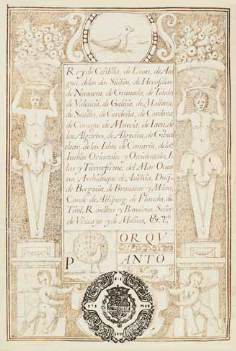 Rey de Castilla, de Leon, de Ara
gon, de las dos Sicilias, de Hierusalem,
de Navarra, de Granada, de Toledo,
de Valencia, de Galicia, de Mallorca,
de Sevilla, de Cerdeña, de Cordova,
de Corcega, de Murcia, de Jaen, de
los Algarves, de Algecira, de Gibral
tar, de las Islas de Canaria, de las
Indias Orientales, y Occidentales, Is
las, y Tierra firme, del Mar Oceano,
Archiduque de Austria, Duque
de Borgoña, de Bravante y Milan,
Conde de Abspurg, de Flandes, de
Tirol, Rosellon y Barcelona, Señor
de Vizcaya y de Molina, &c.
P ORQV
ANTO